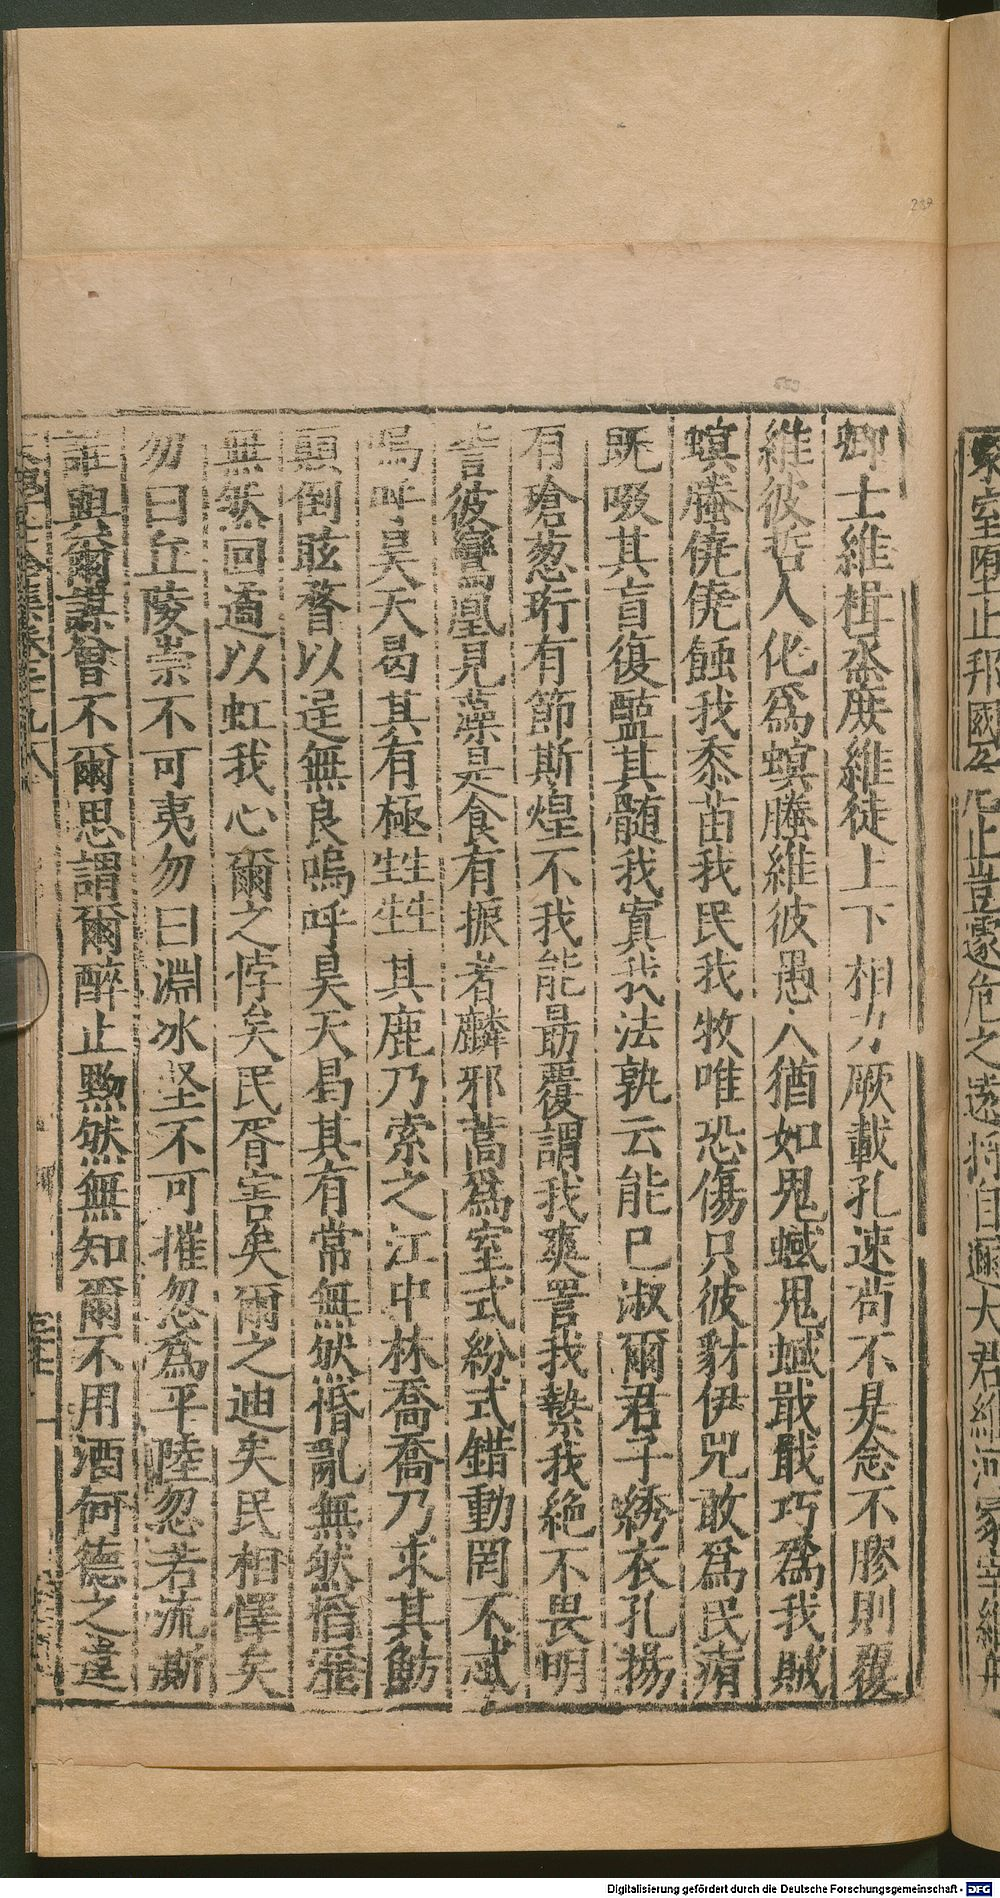 卿士維楫烝庶維徒上下相力厥載孔速尚不是念不膠則覆
維彼哲人化爲螟螣維彼愚人猶如鬼蜮鬼蜮戢戢巧爲我賊
螟螣僥僥蝕我黍苗我民我牧唯恐傷只彼豺伊兕敢爲民痏
既啜其肓復盬其髄我寘我法孰云能已淑爾君子綉衣孔揚
有瑲葱珩有節斯煌不我能勗覆謂我爽詈我縶我絶不畏明
訾彼鸞凰見藻是食有振者麟邪蒿爲室式紛式錯動罔不忒
嗚呼昊天曷其有極甡甡其鹿乃索之江中林喬喬乃求其魴
顛倒眩瞀以逞無良嗚呼昊天曷其有常無然惛亂無然
無然回遹以虹我心爾之悖矣民胥害矣爾之迪矣民相懌矣
勿曰丘陵崇不可夷勿曰淵冰坚不可摧忽爲平陸忽若流澌
誰與爾謀曾不爾思謂爾醉止黙然無知爾不用酒何德之違
家室墮止邦國 止豈遽危之 自邇大君維河冡宰維舟
239
Digitalisierung gefördert durch die Deutsche Forschungsgemeinschaft - DFG